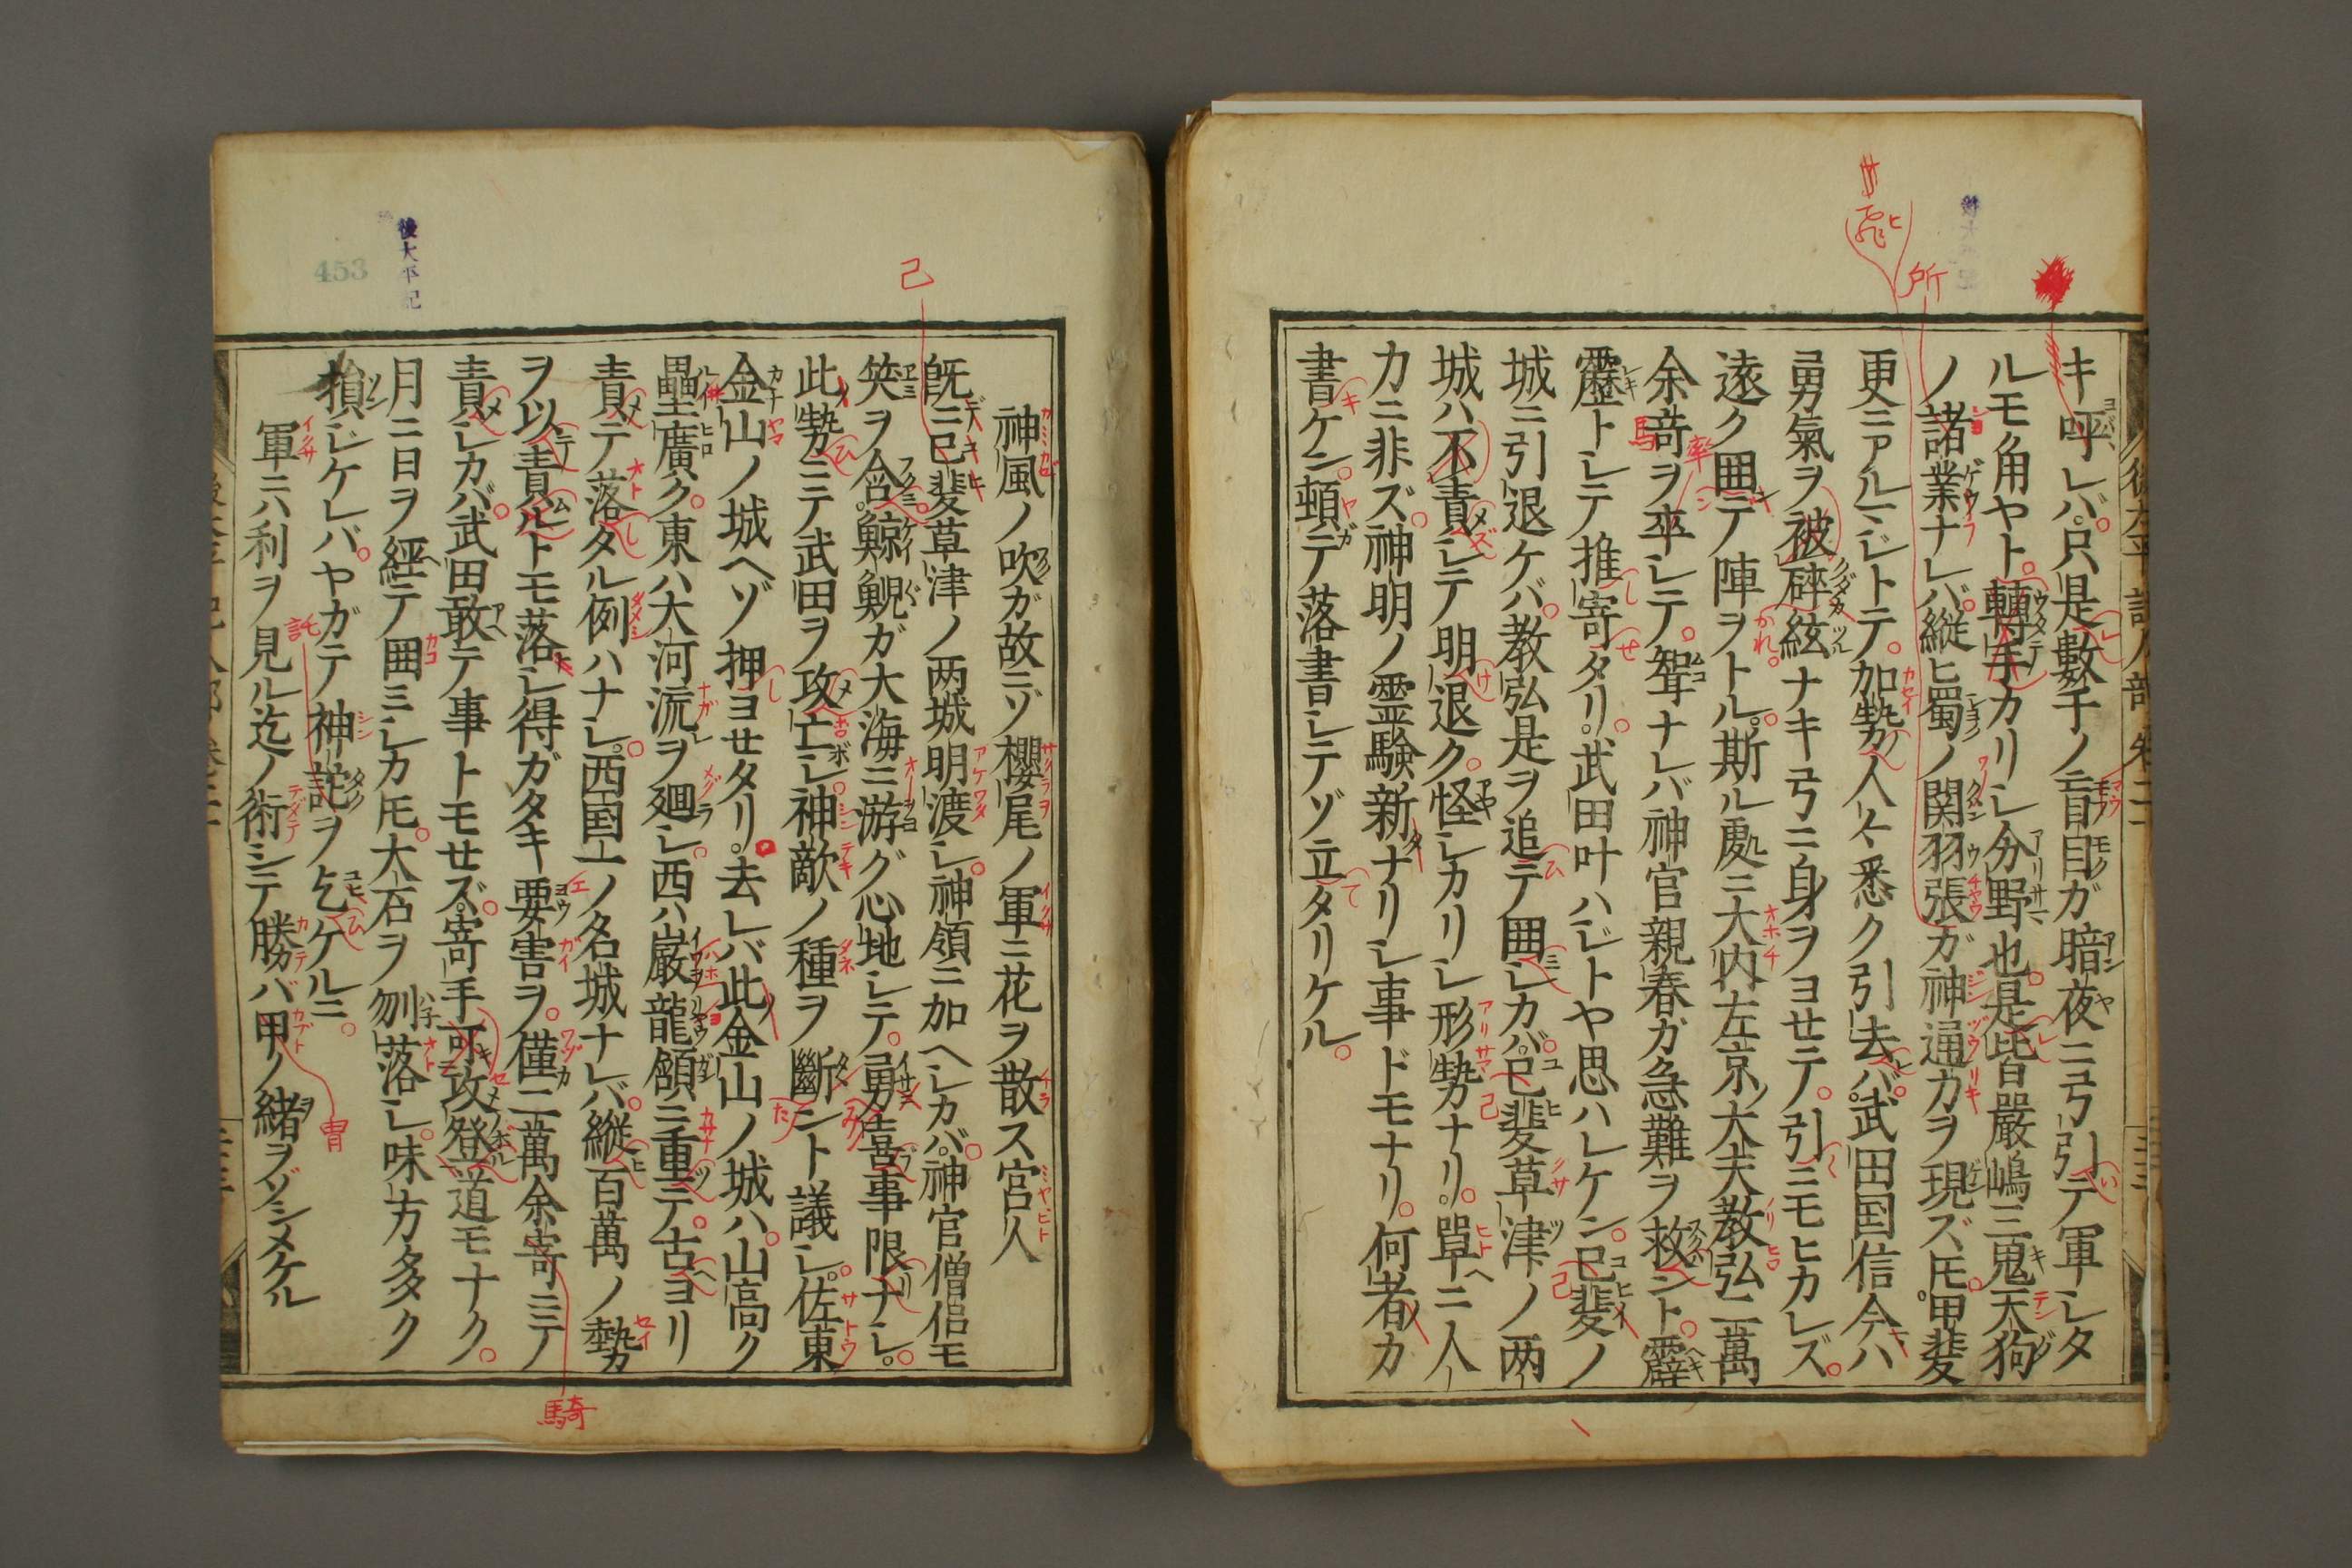 キ呼レバ只是數千ノ盲目ガ暗夜ニ弓引テ軍レタ
ルモ角ヤト轉手カリシ分野也是皆嚴嶋三鬼天狗
ノ諸業ナレバ縦ヒ蜀ノ関羽張ガ神通カヲ現ズ𪜈甲斐
更ニアルレトテ加勢人々悉ク引去バ武田国信今ハ
勇氣ヲ被碎絃ナキ弓ニ身ヲヨセテ引ニモヒカレズ
遠ク囲テ陣ヲトル斯ル處ニ大内左京大夫教弘二萬
余竒ヲ卒シテ聟ナレバ神官親春ガ急難ヲ救ント霹
靂トシテ推寄タリ武田叶ハジトヤ思ハレケン已斐ノ
城ニ引退ケバ教弘是ヲ追テ囲シカバ已斐草津ノ两
城ハ不責シテ明退ク怪シカリシ形勢ナリ單ニ人
カニ非ズ神明ノ霊験新ナリシ事ドモナリ何者カ
書ケン頓テ落書シテゾ立タリケル
後太平記
453
神風ノ吹ガ故ニゾ櫻尾ノ軍ニ花ヲ散ス宮人
既ニ已斐草津ノ两城明渡シ神領ニ加ヘシカバ神官僧侶モ
笑ヲ含鯨鯢ガ大海ニ游グ心地シテ勇喜事限ナシ
此勢ニテ武田ヲ攻亡シ神敵ノ種ヲ斷ント議シ佐東
金山ノ城ヘゾ押ヨセタリ去レバ此金山ノ城ハ山高ク
壘廣ク東ハ大河流ヲ廻シ西ハ巌龍頷ニ重テ古ヨリ
責テ落タル例ハナシ西国一ノ名城ナレバ縦百萬ノ勢
ヲ以責ルトモ落シ得ガタキ要害ヲ僅二萬余寄ニテ
責シカバ武田敢テ事トモセズ寄手可攻登道モナク
月ニ日ヲ經テ囲ミシカ𪜈大石ヲ刎落シ味方多ク
損ジケレバヤガテ神詫ヲ乞ケルニ
軍ニハ利ヲ見ル迄ノ術シテ勝バ甲ノ緒ヲゾシメケル
己
所
騎
冑
託
馬
率